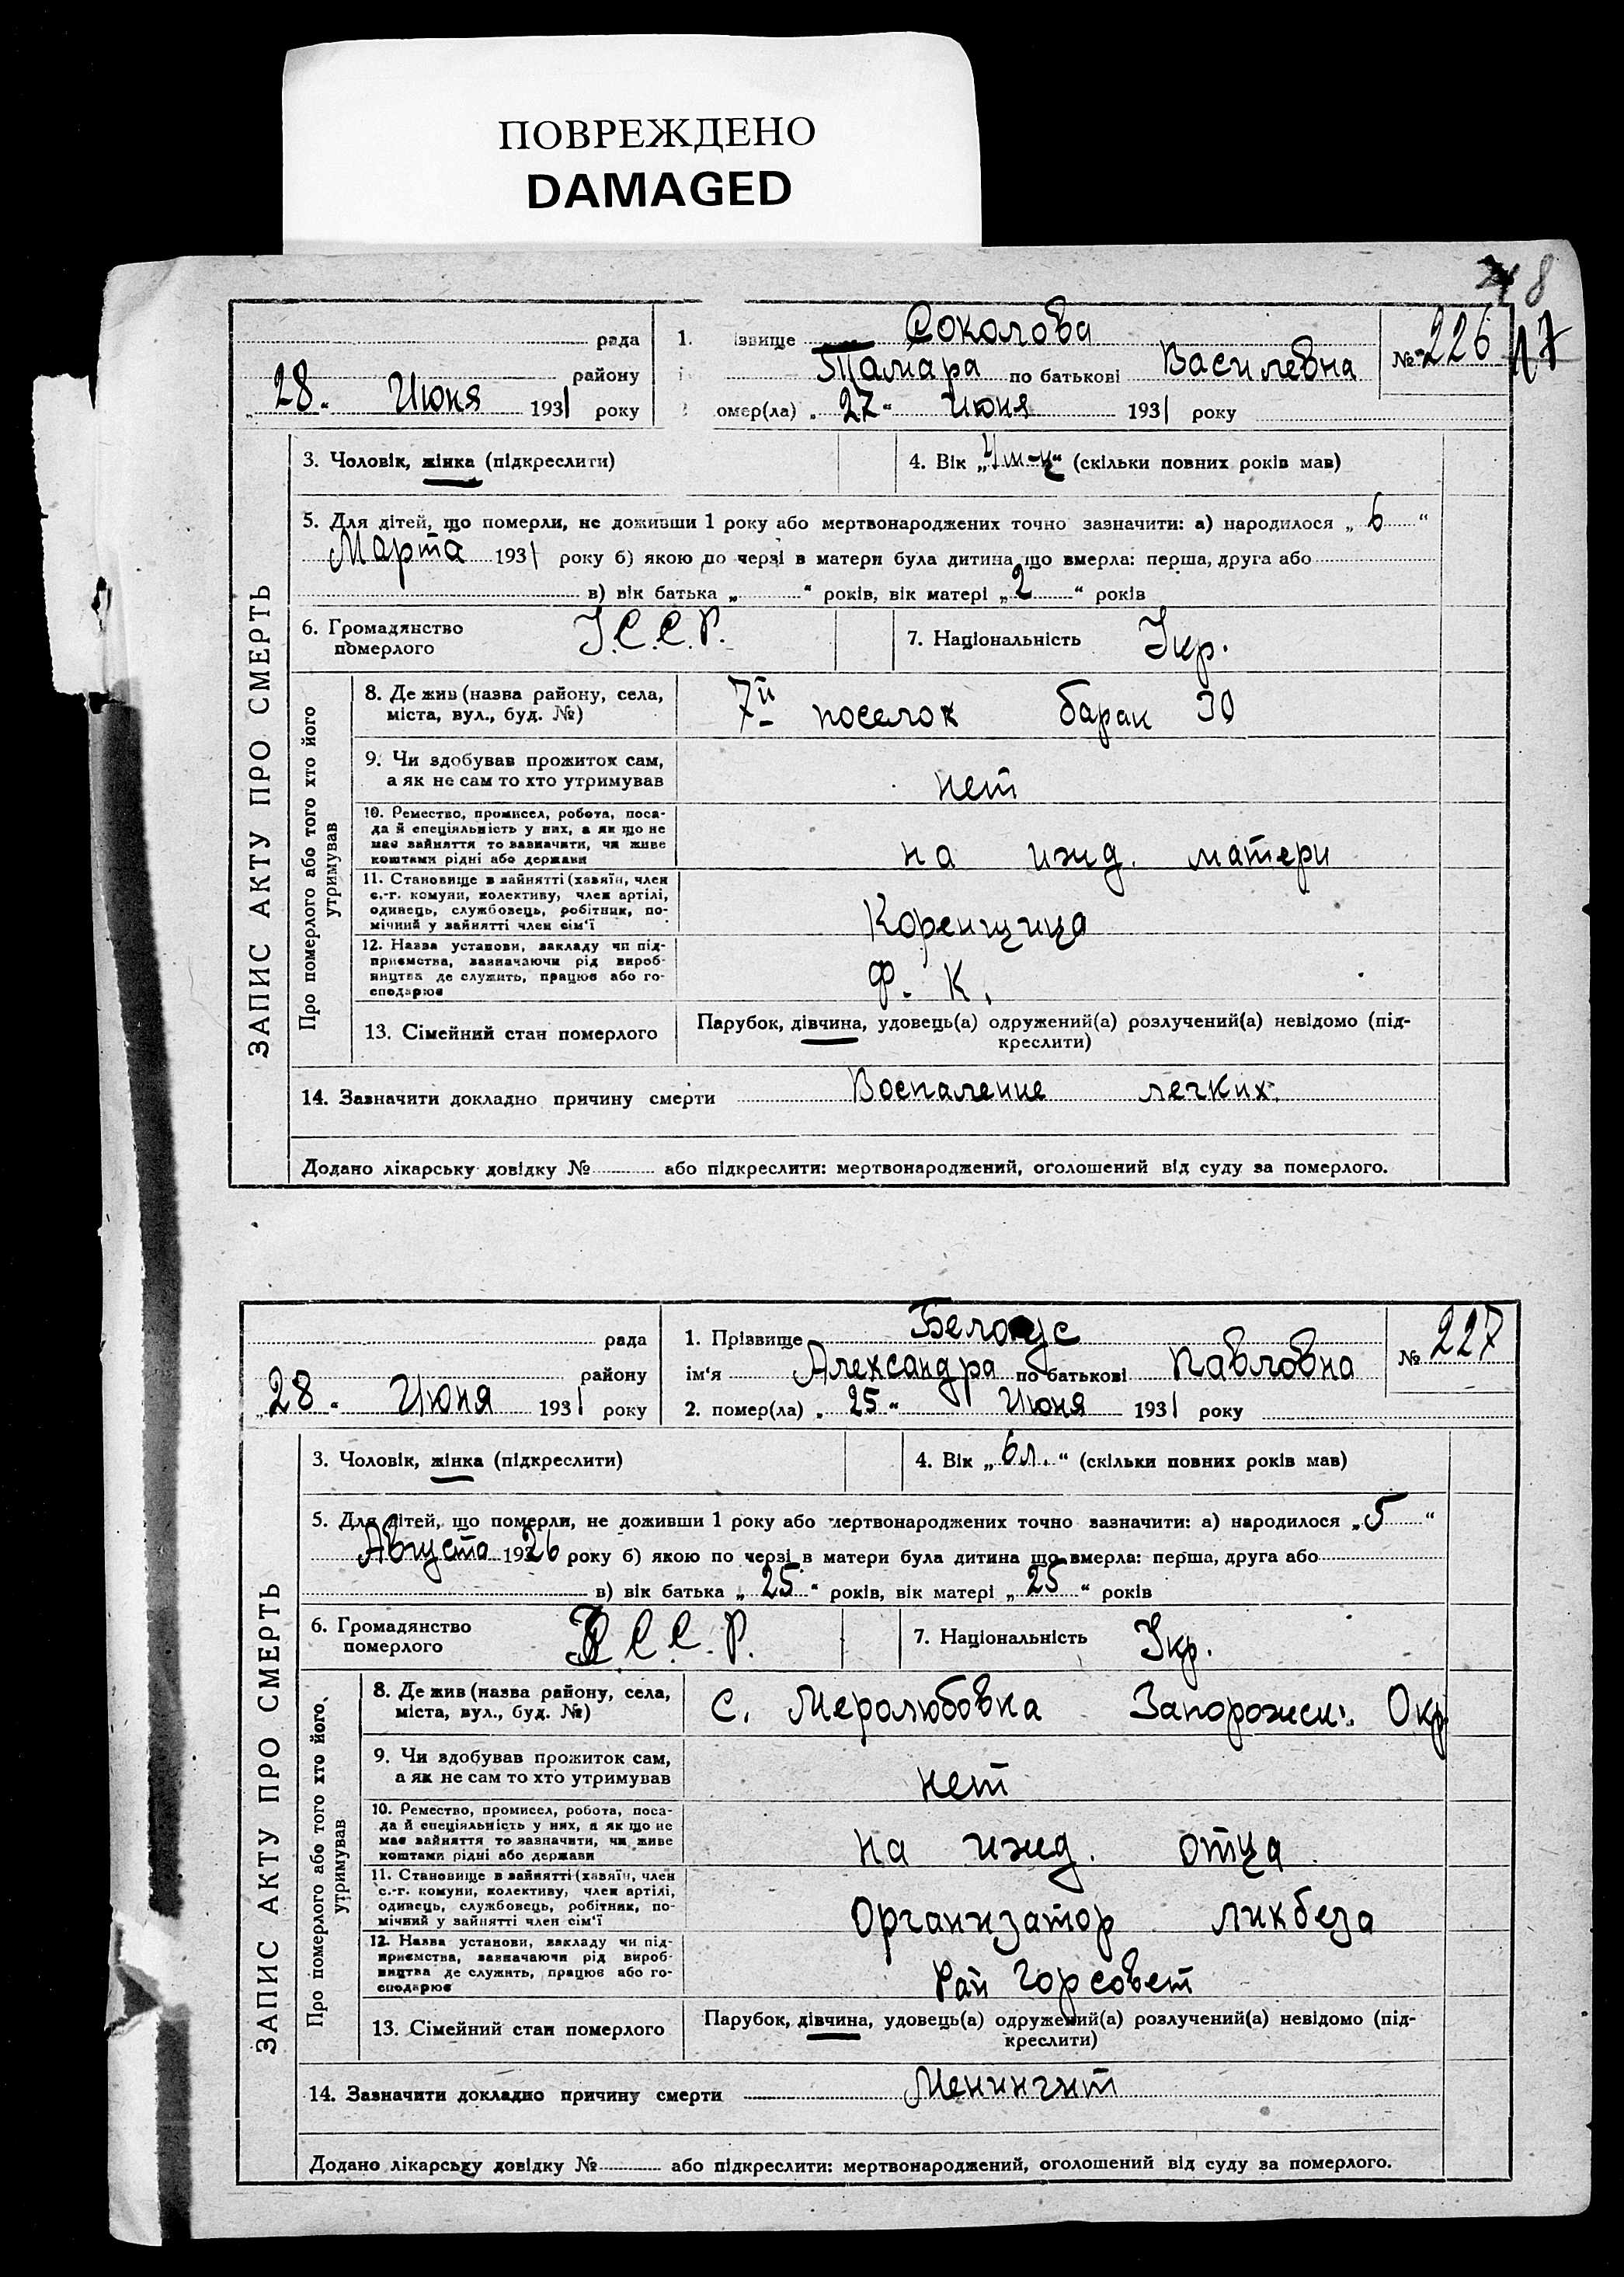 ПОВРЕЖДЕНО
DAMAGED
8
рада
району
28 Июня 1931 року
1. ізвище Соколова
Тамара по батькові Василевна
омер(ла) „ 27 “ Июня 1931 року
№ 226
17
ЗАПИС АКТУ ПРО СМЕРТЬ
3. Чоловік, жінка (підкреслити)
4. Вік „4 м-ц“ (скільки повних років мав)
5. Для дітей, що померли, не доживши 1 року або мертвонароджених точно зазначити: а) народилося „ 6 “
Марта 1931 року б) якою по черзі в матери була дитина що вмерла: перша, друга або
в) вік батька „ “ років, вік матері „ 2 “ років
6. Громадянство померлого У.С.С.Р.
7. Національність Укр.
Про померлого або того хто його утримував
8. Де жив (назва району, села,
міста, вул., буд. №)
7й поселок барак 30
9. Чи здобував прожиток сам,
а як не сам то хто утримував
нет
10. Ремество, промисел, робота, поса-
да й спеціяльність у них, а як що не
має зайняття то зазначити, чи живе
коштами рідні або держави
на ижд. матери
11. Становище в зайнятті (хазяїн, член
с.-г. комуни, колективу, член артілі,
одинець, службовець, робітник, по-
мічний у зайнятті член сім'ї
Коренщица
12. Назва установи, закладу чи під-
приємства, зазначаючи рід вироб-
ництва де служить, працює або го-
сподарює
Ф. К.
13. Сімейний стан померлого
Парубок, дівчина, удовець(а) одружений(а) розлучений(а) невідомо (під-
креслити)
14. Зазначити докладно причину смерти Воспаление легких.
Додано лікарську довідку № або підкреслити: мертвонароджений, оголошений від суду за померлого.
рада
району
„28“ Июня 1931 року
1. Прізвище Белоус
ім'я Александра по батькові Павловна
2. помер(ла) „ 25 “ Июня 1931 року
№ 227
ЗАПИС АКТУ ПРО СМЕРТЬ
3. Чоловік, жінка (підкреслити)
4. Вік „ 6 л. “ (скільки повних років мав)
5. Для дітей, що померли, не доживши 1 року або мертвонароджених точно зазначити: а) народилося „ 5 “
Августа 1926 року б) якою по черзі в матери була дитина що вмерла: перша, друга або
в) вік батька „ 25 “ років, вік матері „ 25 “ років
6. Громадянство померлого С.С.Р.
7. Національність Укр.
Про померлого або того хто його, утримував
8. Де жив (назва району, села,
міста, вул., буд. №)
с. Меролюбовка Запорожск. Окр
9. Чи здобував прожиток сам,
а як не сам то хто утримував
нет
10. Ремество, промисел, робота, поса-
да й спеціяльність у них, а як що не
має зайняття то зазначити, чи живе
коштами рідні або держави
на ижд. отца
11. Становище в зайнятті (хазяїн, член
с.-г. комуни, колективу, член артілі,
одинець, службовець, робітник, по-
мічний у зайнятті член сім'ї
Организатор ликбеза
12. Назва установи, закладу чи під-
приємства, зазначаючи рід вироб-
ництва де служить, працює або го-
сподарює
Рай Горсовет
13. Сімейний стан померлого
Парубок, дівчина, удовець(а) одружений(а) розлучений(а) невідомо (під-
креслити)
14. Зазначити докладно причину смерти Менингит
Додано лікарську довідку № або підкреслити: мертвонароджений, оголошений від суду за померлого.